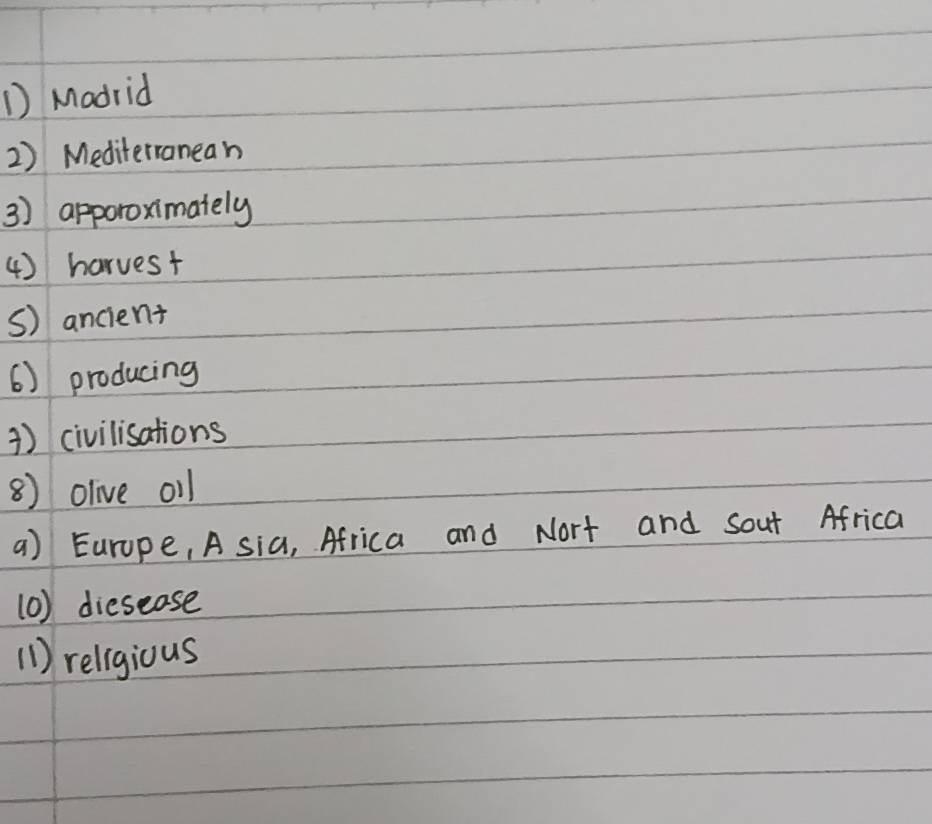 1) Madrid
2) Mediterranean
3) apporoximately
4) harvest
5) ancient
6) producing
7) civilisations
8) Olive oil
9) Europe, Asia, Africa and Nort and Sout Africa
10) diesease
11) religious